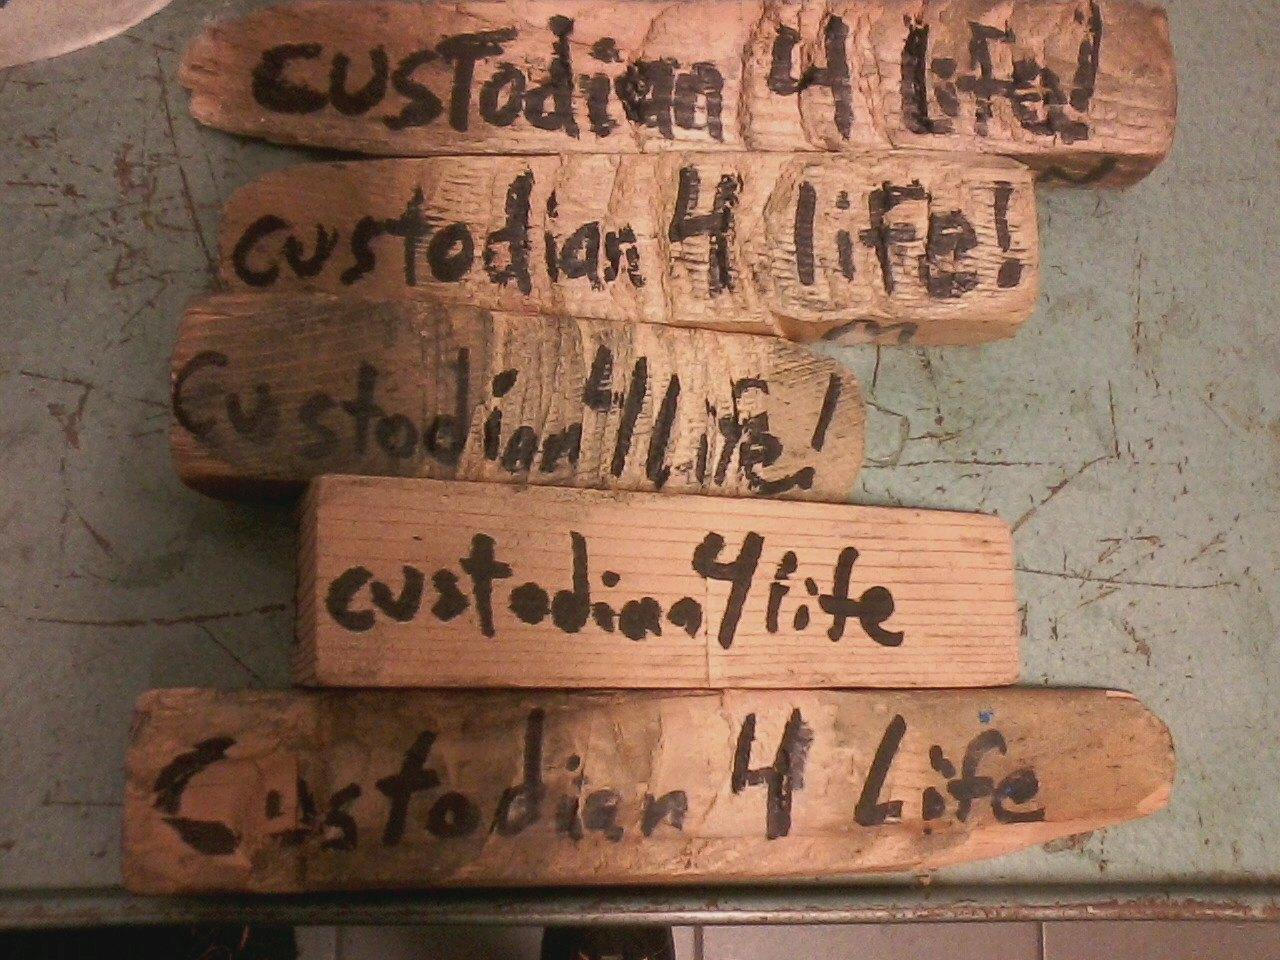 custodian 4 life!
custodian 4 life!
Custodian 4 Life!
custodian 4 life
Custodian 4 Life